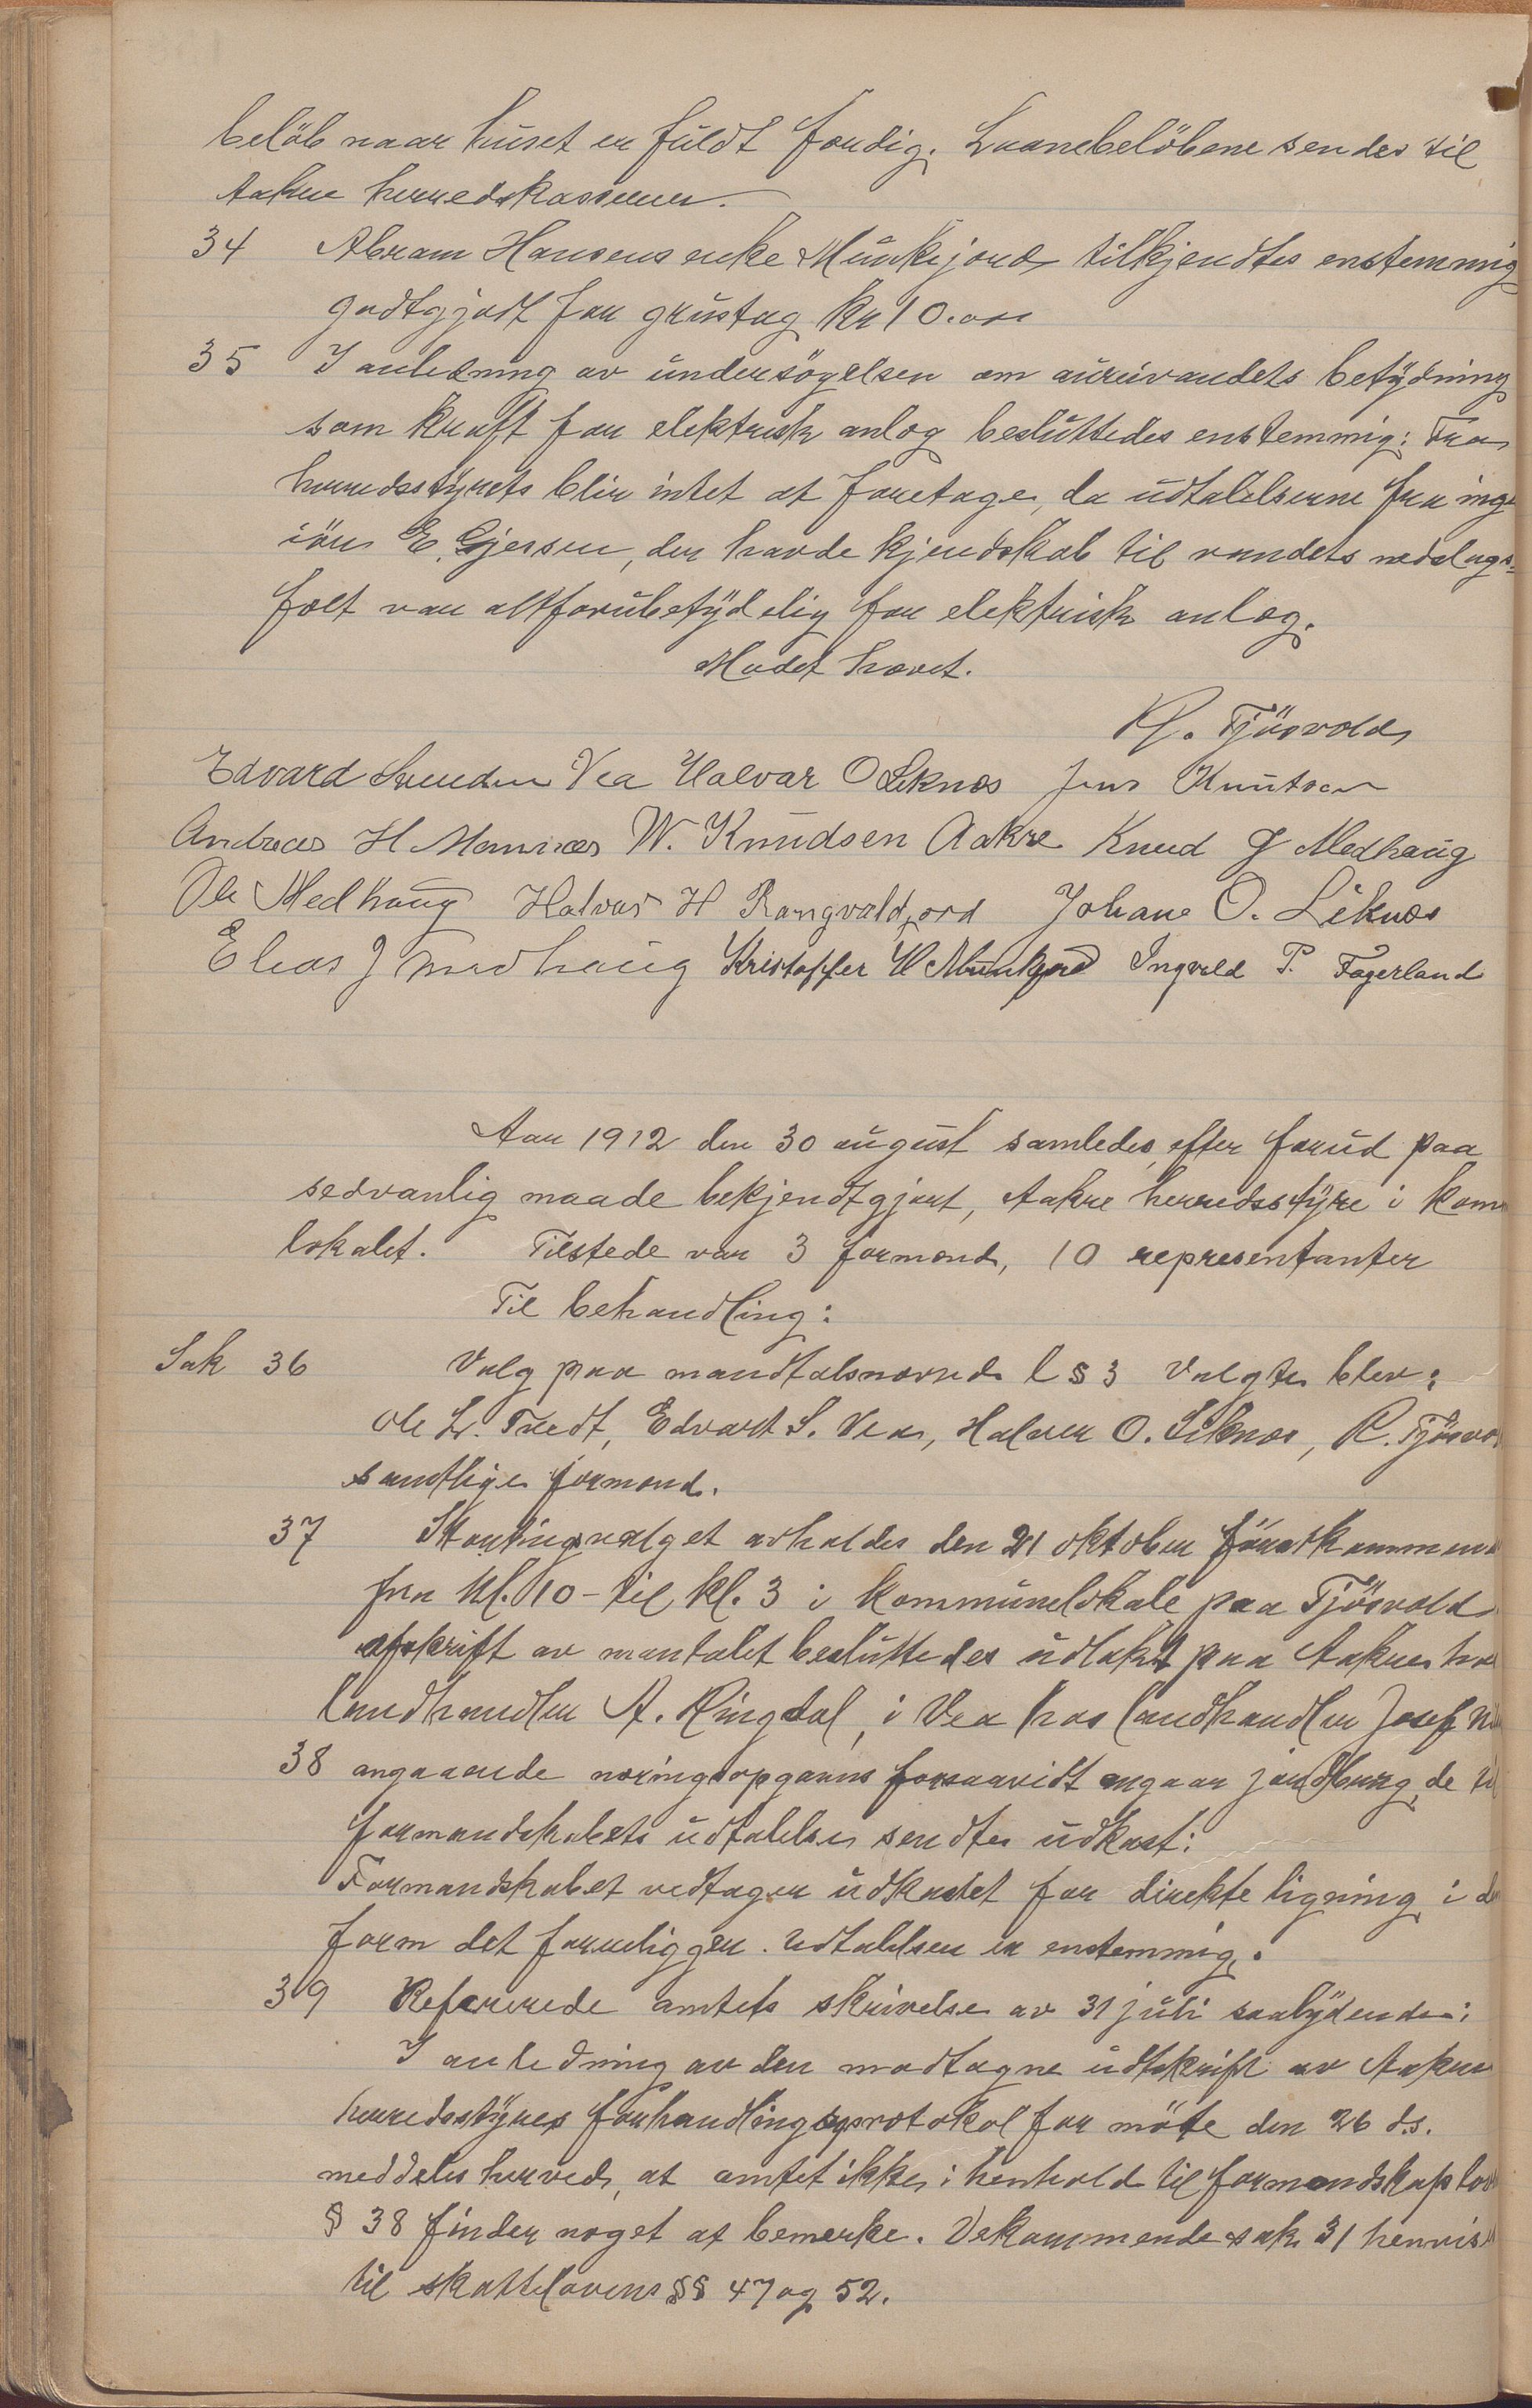 beløb naar huset er fuldt færdig. Laanebeløbene sendes til
Aakre herredskasserer.
34 Abram Hansens enke Munkejord tilkjendtes enstemmig
godtgjort for grustag kr 10.00
35 I anledning av undersøgelsen om aurevandets betydning
som kraft for elektrisk anlæg besluttedes enstemmig: Fra
herredsstyrets blir intet at foretage, da udtalelserne fra inge
iør E. Gjersen, der havde kjendskab til vandets nedslags-
felt var altforubetydelig for elektrisk anlæg.
Mødet hævet.
R. Tjøsvold
Edvard Svendsen Vea Halvar O Liknes Jens Knutsen
Andreas H Mannes W. Knudsen Aakre Knud J Medhaug
Ole Medhaug Halvar H Rangvaldjord Johans O. Liknes
Elias J Medhaug Kristoffer H Munkjord Ingvald P. Fagerland
Aar 1912 den 30 august samledes, efter forud paa
sedvanlig maade bekjendtgjort, Aakre herredsstyre i kom
lokalet. Tilstede var 3 formænd, 10 representanter
Til behandling:
Sak 36 Valg paa mandtalsnævnd l § 3 Valgtes blev:
Ole L. Tredt, Edvart S. Vea, Halvar O. Liknes, R. Tjøsvo
samtlige formænd.
37 Stortingsvalget avholdes den 21 oktober førstkommen
fra kl. 10 - til kl. 3 i kommunelokale paa Tjøsvold
afskrift av mantalet besluttedes udlakt paa Aakre ho
landhandler A. Ringdal, i Vea hos landhandler Josef
38 angaaende næringsopgaver forsaavidt angaar jordbrug, de til
formandskabets udtalelse sendte udkast:
Formandskabet vedtager udkastet for direkte ligning i d
form det foreligger. Udtalelsen er enstemmig.
39 Refererede amtets skrivelse av 31 juli saalydende:
I anledning av den modtagne udskrift av Aakre
herredsstyres forhandlingsprotokol for møte den 26 ds.
meddeles herved, at amtet ikke i henhold til formandskapslov
§ 38 finder noget at bemerke. Vekommende sak 31 henvis
til skattelovens §§ 47 og 52.